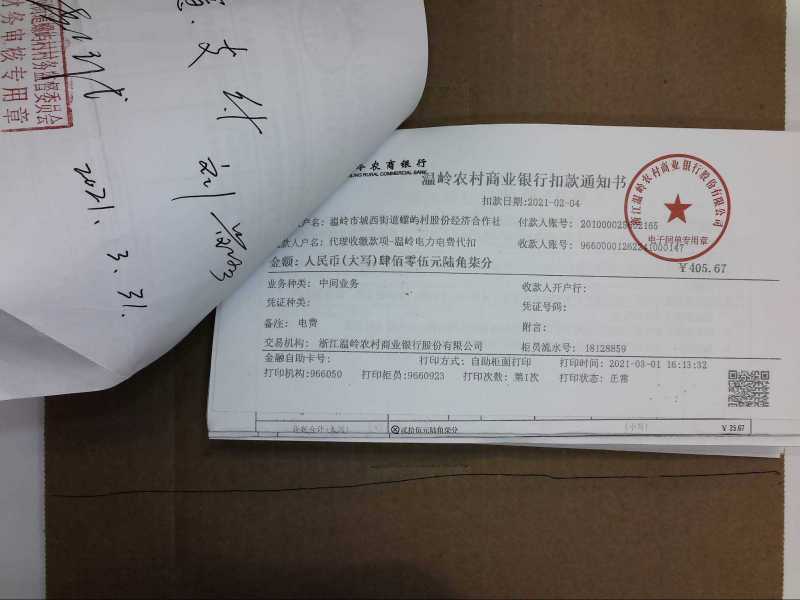 支付
2021. 3. 31.
务审核专用章
农商银行
RURAL COMMERCIAL BANK
温岭农村商业银行扣款通知书
扣款日期:2021-02-04
户名: 温岭市城西街道螺屿村股份经济合作社 付款人账号:
收款人户名: 代理收缴款项-温岭电力电费代扣 收款人账号:
金额: 人民币(大写)肆佰零伍元陆角柒分 ¥405.67
业务种类: 中间业务 收款人开户行:
凭证种类: 凭证号码:
备注: 电费 附言:
交易机构: 浙江温岭农村商业银行股份有限公司 柜员流水号: 18128859
金融自助卡号: 打印方式: 自助柜面打印 打印时间: 2021-03-01 16:13:32
打印机构:966050 打印柜员:9660923 打印次数: 第1次 打印状态: 正常
浙江温岭农村商业银行股份有限公司
电子回单专用章
贰拾伍元陆角柒分 (小写) ¥ 35.67